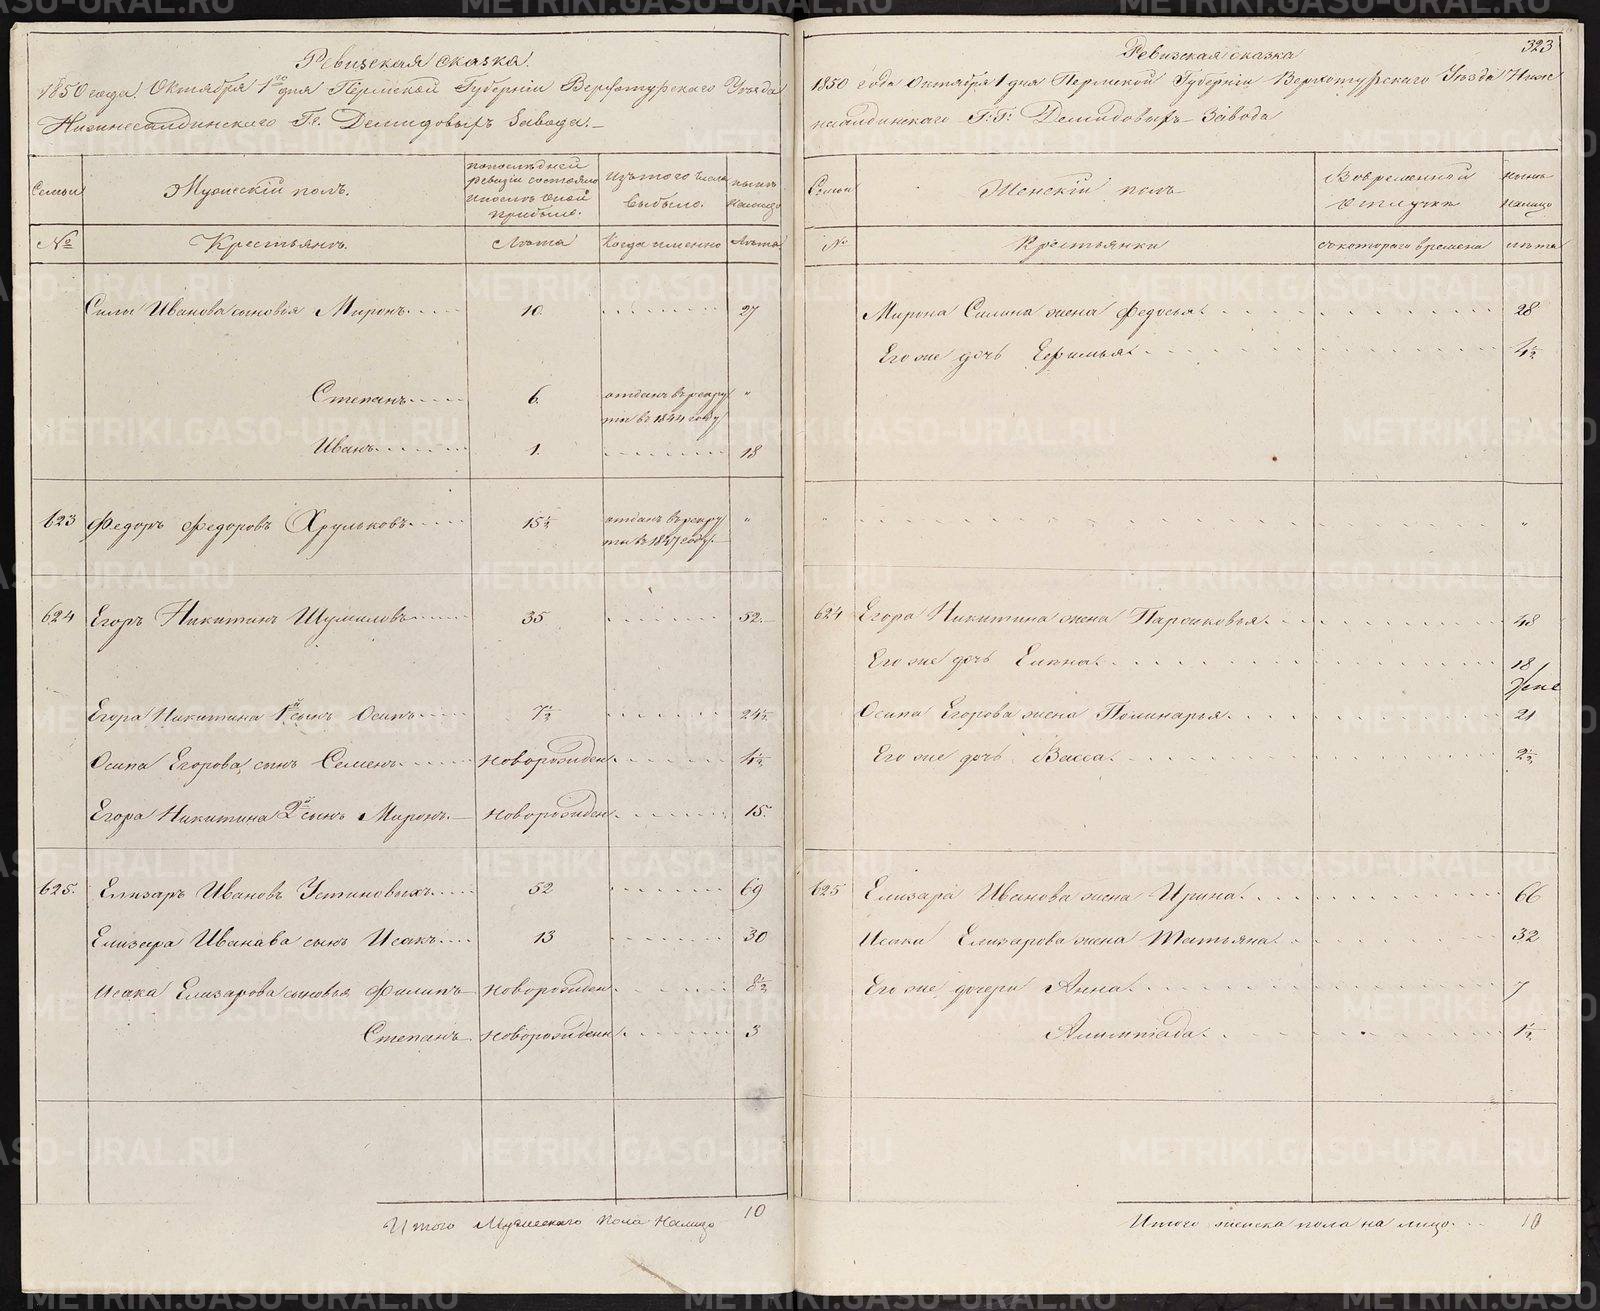 Ревизская сказка.
1850 года Октября 1го дня Пермской Губернiи Верхотурскаго Уѣзда
Нижнесалдинскаго Гг. Демидовыхъ Завода.
Семьи
Мужескiй полъ.
попослѣдней
ревизiи состояло
ипослѣ оной
прибыло.
Изътого числа
выбыло.
нынѣ
налицо
№
Крестьянъ.
Лѣта
Когда именно
Лѣта
Силы Иванова сыновья Миронъ.
10.
27
Степанъ.
6.
отданъ врекру
ты въ 1844 году
"
Иванъ.
1.
18
623
Федоръ Федоровъ Хрульковъ.
15½
отданъ врекру
ты въ 1847 году.
"
624
Егоръ Никитинъ Шумиловъ
35
52.
Егора Никитина 1й сынъ Осипъ.
7½
24½
Осипа Егорова сынъ Семенъ.
новорожден.
4½
Егора Никитина 2й сынъ Миронъ.
новорожден.
15.
625.
Елизаръ Ивановъ Устиновыхъ.
52
69
Елизара Иванава сынъ Исакъ.
13
30
Исака Елизарова сыновья Филипъ
новорожден.
8½
Степанъ
новорожден.
3
Итого Мужескаго пола налицо
10
323
Ревизская сказка
1850 года Октября 1 дня Пермской Губернiи Верхотурскаго Уѣзда Ниж
несалдинскаго Г:Г: Демидовыхъ Завода
Семьи
Женскiй полъ
Вовременной
отлучкѣ
нынѣ
налицо
№
Крестьянки
Скотораго времена
лѣта
Мирона Силина жена Федосья.
28
Его же дочь Ефимья.
4½
"
"
624
Егора Никитина жена Парасковья.
48
Его же дочь Елена.
18
Осипа Егорова жена Полинарья.
21
Его же дочь Васса.
2½
625
Елизара Иванова жена Ирина.
66
Исака Елизарова жена Татьяна.
32
Его же дочери Анна.
7
Алимпiада.
1½
Итого женска пола на лицо.
10
METRIKI.GASO-URAL.RU